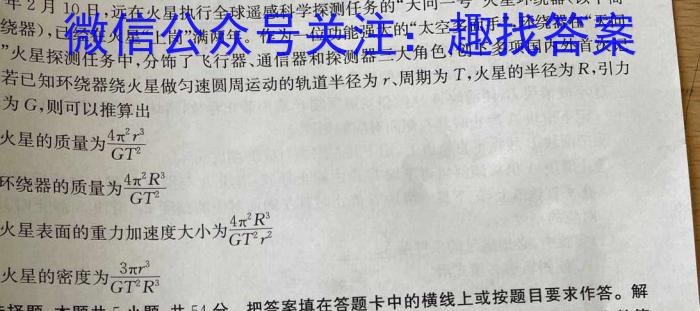 年2月10日,远在火星执行全球遥感科学探测任务的"天问一号"火星环绕器(以下简
绕器),已 满两年。作为一位功能强大的"太空
微信公众号关注:趣找答案
"火星探测任务中,分饰了飞行器、通信器和探测器三大角色,创下多项国内外首次
若已知环绕器绕火星做匀速圆周运动的轨道半径为r、周期为T,火星的半径为R,引力
为G,则可以推算出
火星的质量为4π²r³/GT²
环绕器的质量为4π²R³/GT²
火星表面的重力加速度大小为4π²R³/GT²r²
火星的密度为3πr³/GT²R³
选择题 本题共5小题,共54分。把答案填在答题卡中的横线上或按题目要求作答。解